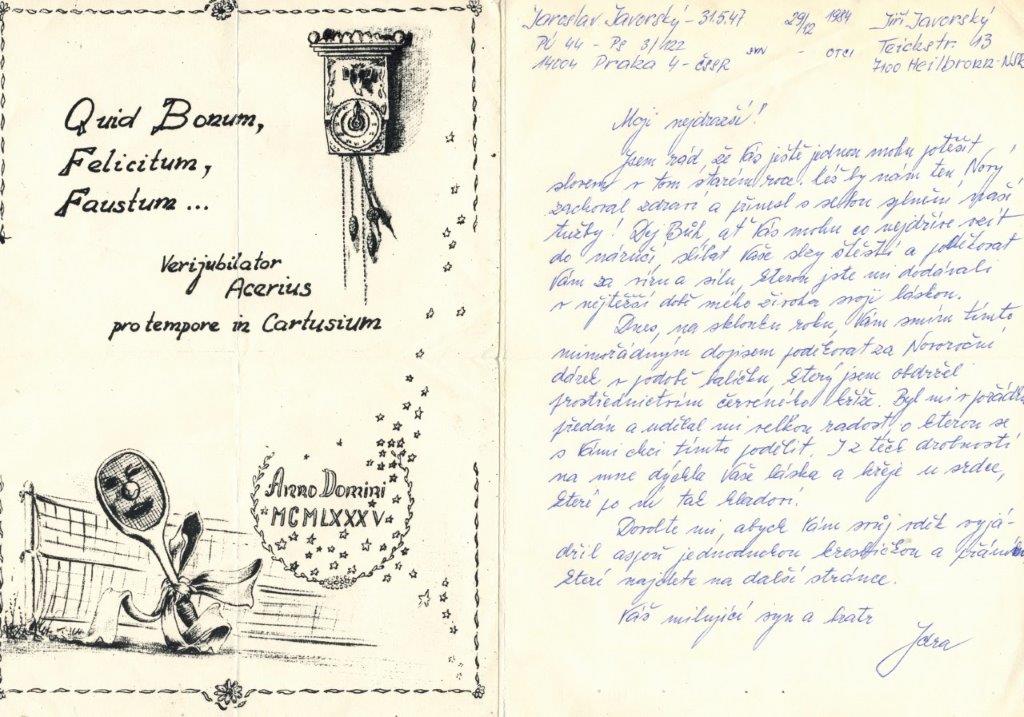 Quid Bonum,
Felicitum,
Faustum ...
Verijubilator
Acerius
pro tempore in Cartusium
Anno Domini
MCMLXXXV
Jaroslav Javorský - 31.5.47
29/12 1984
Jiří Javorský
PÚ 44 - PS 3/122
SYN - OTCI
Teichstr. 13
14004 Praha 4 - ČSSR
7100 Heilbronn - NSR
Moji nejdražší!
Jsem rád, že Vás ještě jednou mohu potěšit
slovem v tom starém roce. Kéž by nám ten Nový
zachoval zdraví a přinesl s sebou splnění naší
tužby! Dej Bůh, ať Vás mohu co nejdříve vzít
do náručí, slíbat Vaše slzy štěstí a poděkovat
Vám za víru a sílu, kterou jste mi dodávali
v nejtěžší době mého života svojí láskou.
Dnes, na sklonku roku, Vám smím tímto
mimořádným dopisem poděkovat za Novoroční
dárek v podobě balíčku, který jsem obdržel
prostřednictvím červeného kříže. Byl mi v pořádku
předán a udělal mi velkou radost, o kterou se
s Vámi chci tímto podělit. I z těch drobností
na mne dýchla Vaše láska a hřeje u srdce,
které po ní tak hladoví.
Dovolte mi, abych Vám svůj vděk vyjá-
dřil aspoň jednoduchou kresbičkou a přáním,
které najdete na další stránce.
Váš milující syn a bratr
Jára